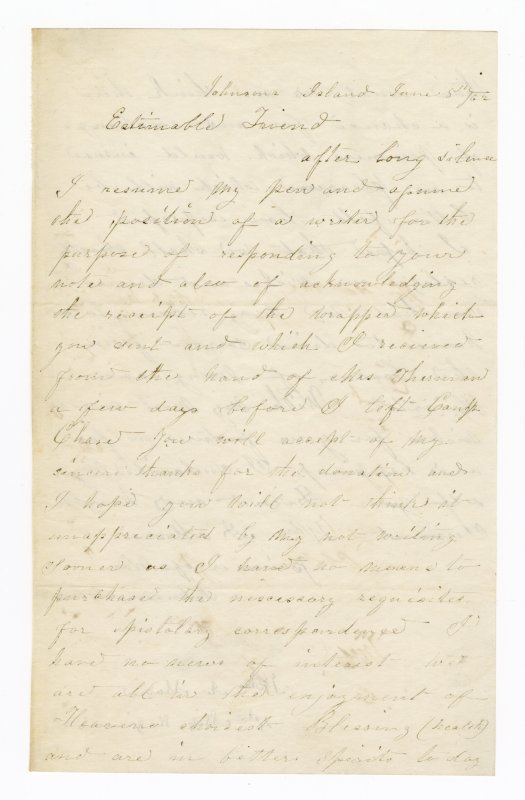 Johnsons Island June 5th/62
Estimable Friend
after long silence
I resume my pen and assume
the position of a writer for the
purpose of responding to your
note and also of acknowledging
the receipt of the wrapper which
you sent and which I recieved
from the hand of Mrs Thurman
a few days before I left Camp
Chase You will accept of my
sincere thanks for the donation and
I hope you will not think it
unappreciated by my not writing
sooner as I have no means to
purchase the nescessary requisites
for epistolary correspondence I
have no news of interest we
are all in the enjoyment of
Heavens choicest Blessing (health)
and are in better spirits to day